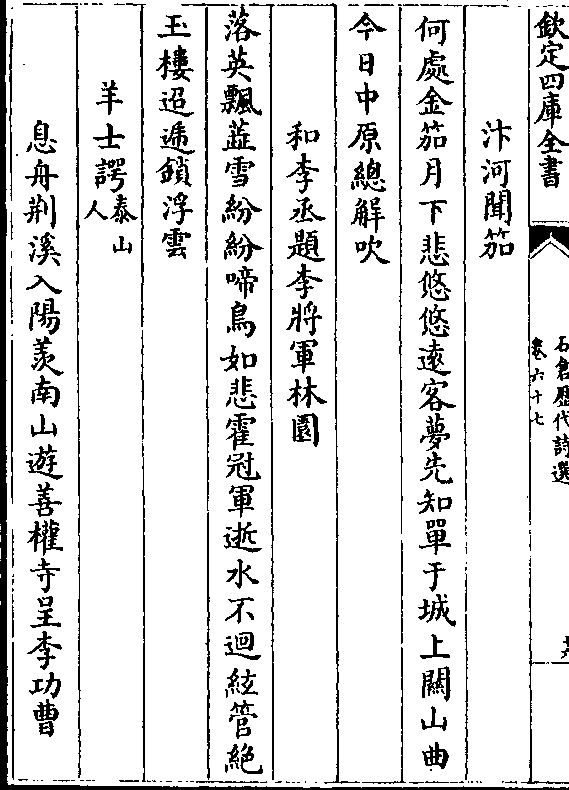 欽定四庫全書
石倉歷代詩選
卷六十七
汴河聞笳
何處金笳月下悲悠悠遠客夢先知單于城上關山曲
今日中原總解吹
和李丞題李將軍林園
落英飄蘂雪紛紛啼鳥如悲霍冠軍逝水不迴絃管絶
玉樓迢遞鎖浮雲
羊士諤泰山人
息舟荆溪入陽羨南山遊善權寺呈李功曹